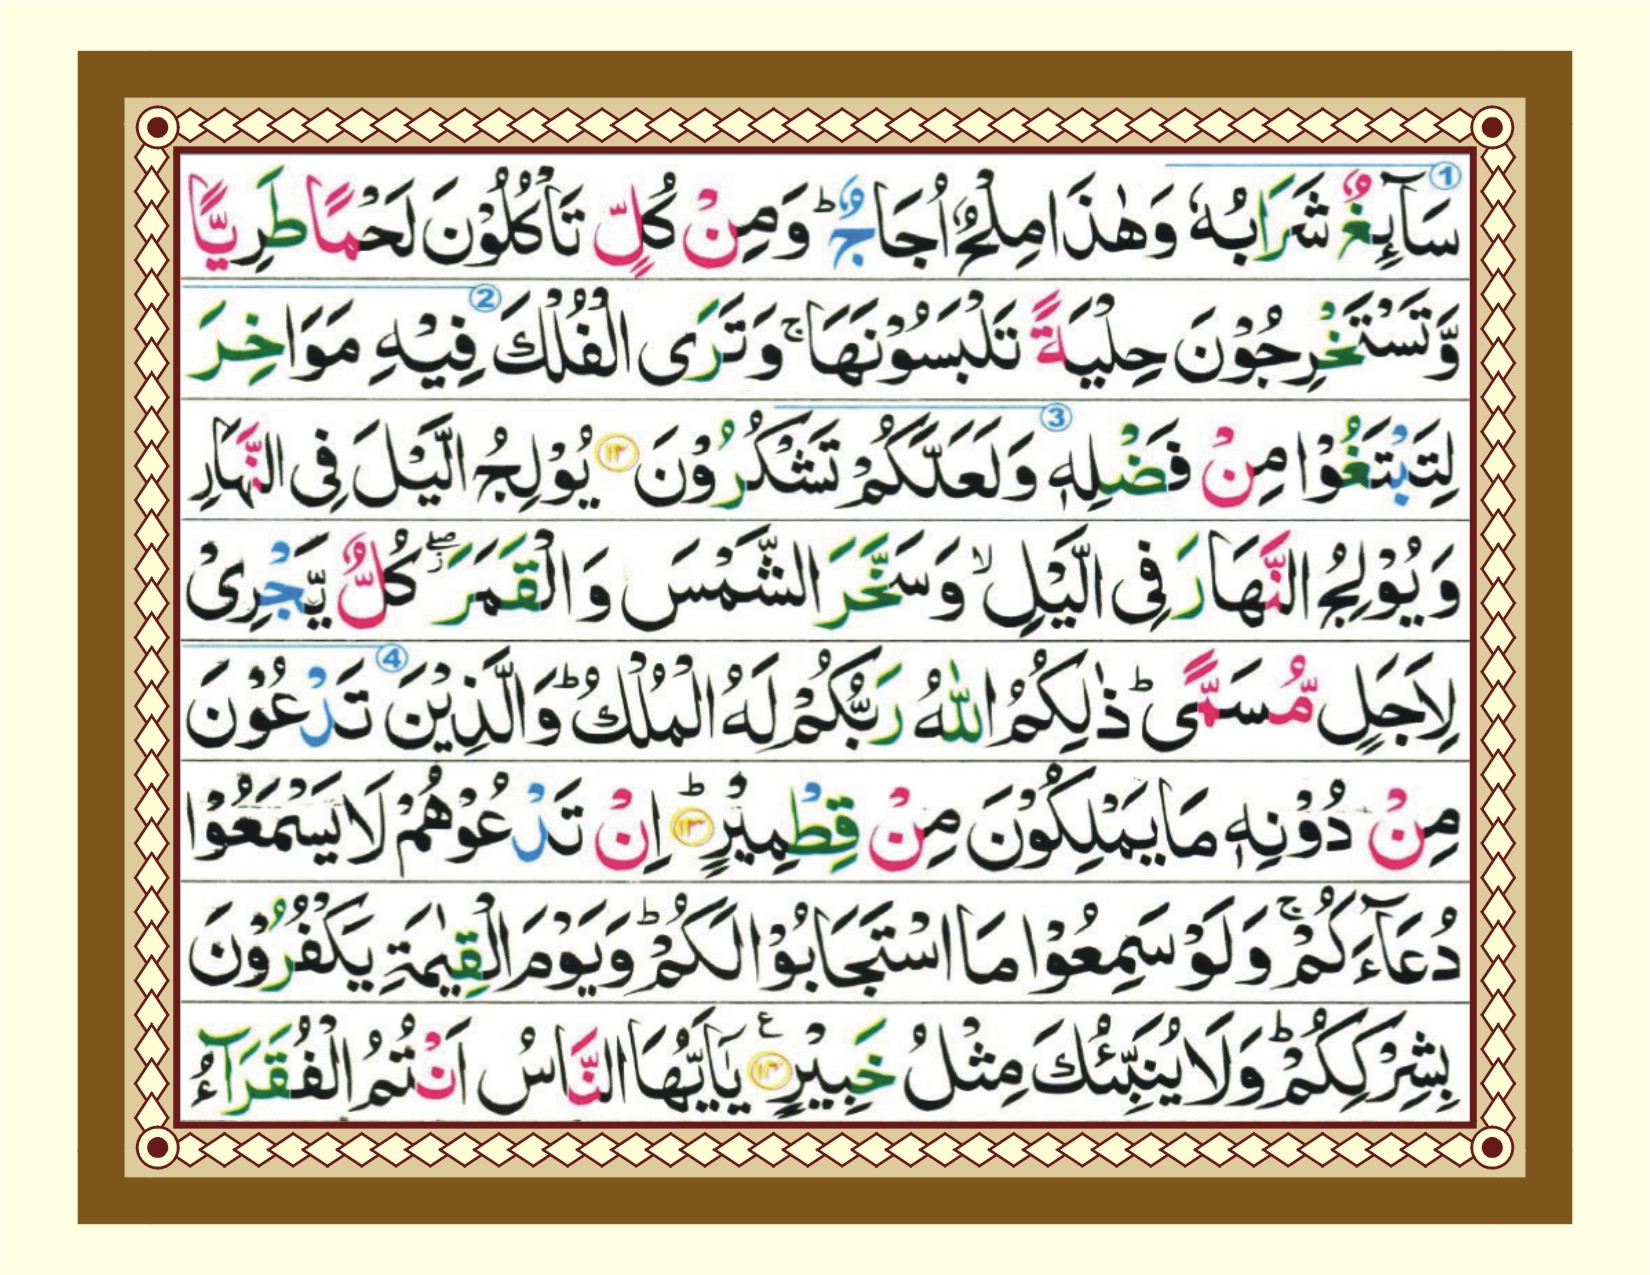 سَآئِغٌ شَرَابُهٗ وَهٰذَا مِلْحٌ اُجَاجٌ ؕ وَمِنْ كُلٍّ تَاْكُلُوْنَ لَحْمًا طَرِيًّا ①
وَّتَسْتَخْرِجُوْنَ حِلْيَةً تَلْبَسُوْنَهَا ۚ وَتَرَى الْفُلْكَ ② فِيْهِ مَوَاخِرَ
لِتَبْتَغُوْا مِنْ فَضْلِهٖ ③ وَلَعَلَّكُمْ تَشْكُرُوْنَ ﴿۱۲﴾ يُوْلِجُ الَّيْلَ فِى النَّهَارِ
وَيُوْلِجُ النَّهَارَ فِى الَّيْلِ ۙ وَسَخَّرَ الشَّمْسَ وَالْقَمَرَ ۖ ز كُلٌّ يَّجْرِىْ
لِاَجَلٍ مُّسَمًّى ؕ ذٰلِكُمُ اللّٰهُ رَبُّكُمْ لَهُ الْمُلْكُ ؕ وَالَّذِيْنَ ④ تَدْعُوْنَ
مِنْ دُوْنِهٖ مَا يَمْلِكُوْنَ مِنْ قِطْمِيْرٍ ؕ ﴿۱۳﴾ اِنْ تَدْعُوْهُمْ لَا يَسْمَعُوْا
دُعَآءَكُمْ ۚ وَلَوْ سَمِعُوْا مَا اسْتَجَابُوْا لَكُمْ ؕ وَيَوْمَ الْقِيٰمَةِ يَكْفُرُوْنَ
بِشِرْكِكُمْ ؕ وَلَا يُنَبِّئُكَ مِثْلُ خَبِيْرٍ ﴿۱۴﴾ ع يٰۤاَيُّهَا النَّاسُ اَنْتُمُ الْفُقَرَآءُ